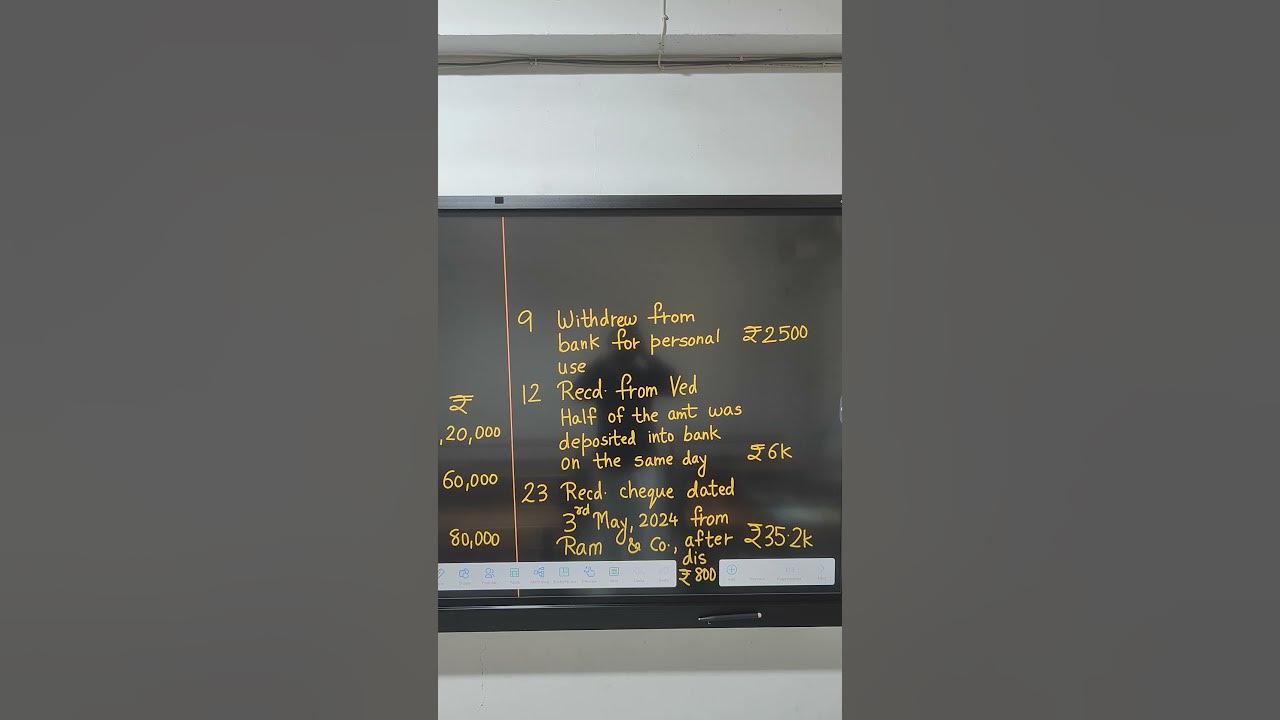 ₹
,20,000
60,000
80,000
9 Withdrew from
bank for personal ₹2500
use
12 Recd. from Ved
Half of the amt was
deposited into bank
on the same day ₹6k
23 Recd. cheque dated
3rd May, 2024 from
Ram & Co., after ₹35.2k
dis
₹800